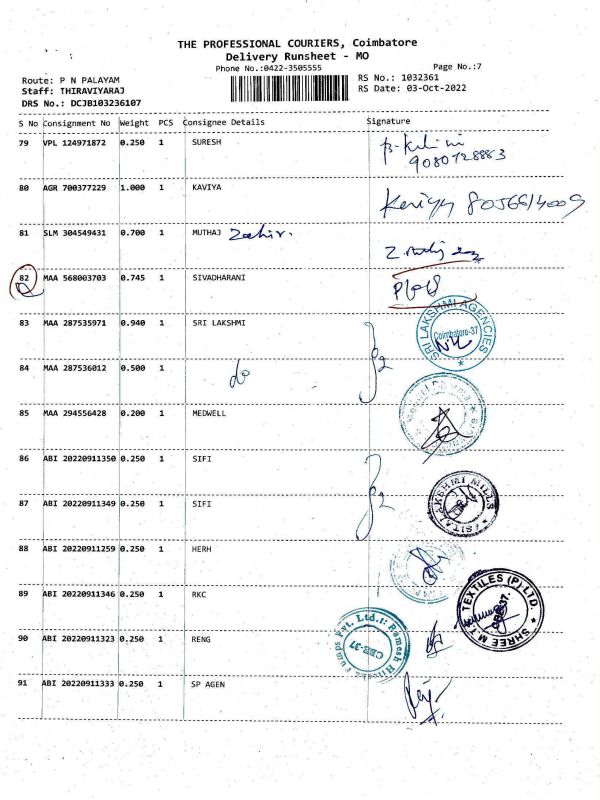 THE PROFESSIONAL COURIERS, Coimbatore
Delivery Runsheet - MO
Phone No.:0422-3505555
Page No.:7
Route: P N PALAYAM
RS No.: 1032361
Staff: THIRAVIYARAJ
RS Date: 03-Oct-2022
DRS No.: DCJB103236107
S No Consignment No Weight PCS Consignee Details Signature
79 VPL 124971872 0.250 1 SURESH
9080728883
80 AGR 700377229 1.000 1 KAVIYA
81 SLM 304549431 0.700 1 MUTHAJ Zahir.
82 MAA 568003703 0.745 1 SIVADHARANI
83 MAA 287535971 0.940 1 SRI LAKSHMI
SRI LAKSHMI AGENCIES
Coimbatore-37
84 MAA 287536012 0.500 1 do
85 MAA 294556428 0.200 1 MEDWELL
86 ABI 20220911350 0.250 1 SIFI
87 ABI 20220911349 0.250 1 SIFI
SITALAKSHMI MILLS
88 ABI 20220911259 0.250 1 HERH
89 ABI 20220911346 0.250 1 RKC
SHREE M.T. TEXTILES (P) LTD.
CBE-37.
90 ABI 20220911323 0.250 1 RENG
Pumps Pvt. Ltd.
Ramesh
CBE-37
91 ABI 20220911333 0.250 1 SP AGEN